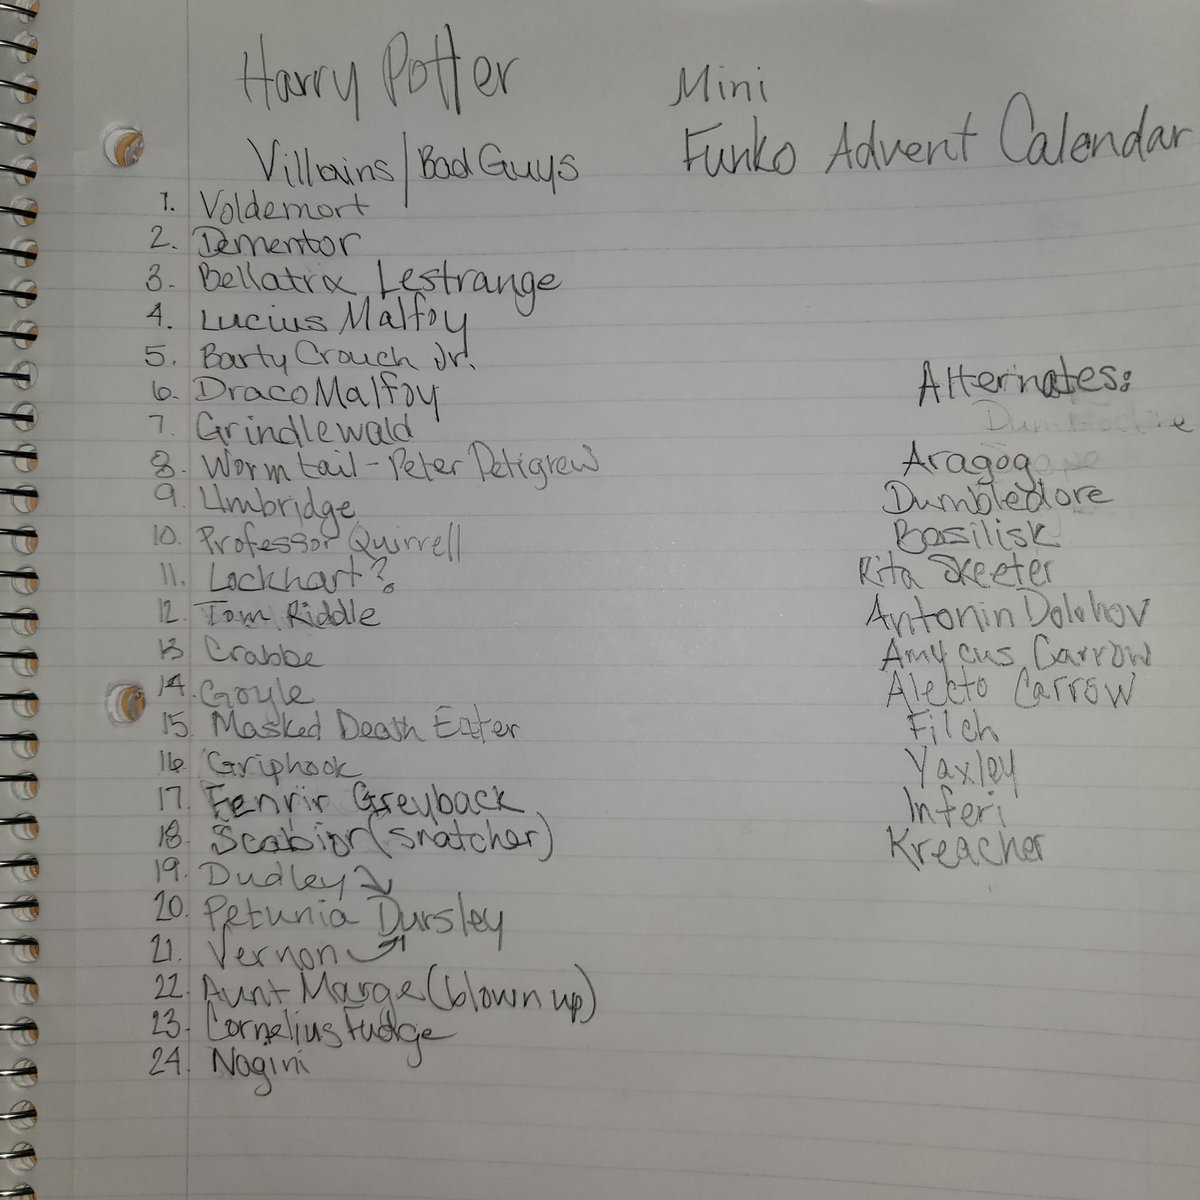 Harry Potter
Villains/Bad Guys
Mini
Funko Advent Calendar
1. Voldemort
2. Dementor
3. Bellatrix Lestrange
4. Lucius Malfoy
5. Barty Crouch Jr.
6. Draco Malfoy
7. Grindlewald
8. Wormtail - Peter Petigrew
9. Umbridge
10. Professor Quirrell
11. Lockhart?
12. Tom Riddle
13 Crabbe
14. Goyle
15. Masked Death Eater
16. Griphook
17. Fenrir Greyback
18. Scabior (snatcher)
19. Dudley
20. Petunia Dursley
21. Vernon
22. Aunt Marge (blown up)
23. Cornelius Fudge
24. Nagini
Alternates:
Dumbledore
Aragog
Dumbledore
Basilisk
Rita Skeeter
Antonin Dolohov
Amycus Carrow
Alecto Carrow
Filch
Yaxley
Inferi
Kreacher